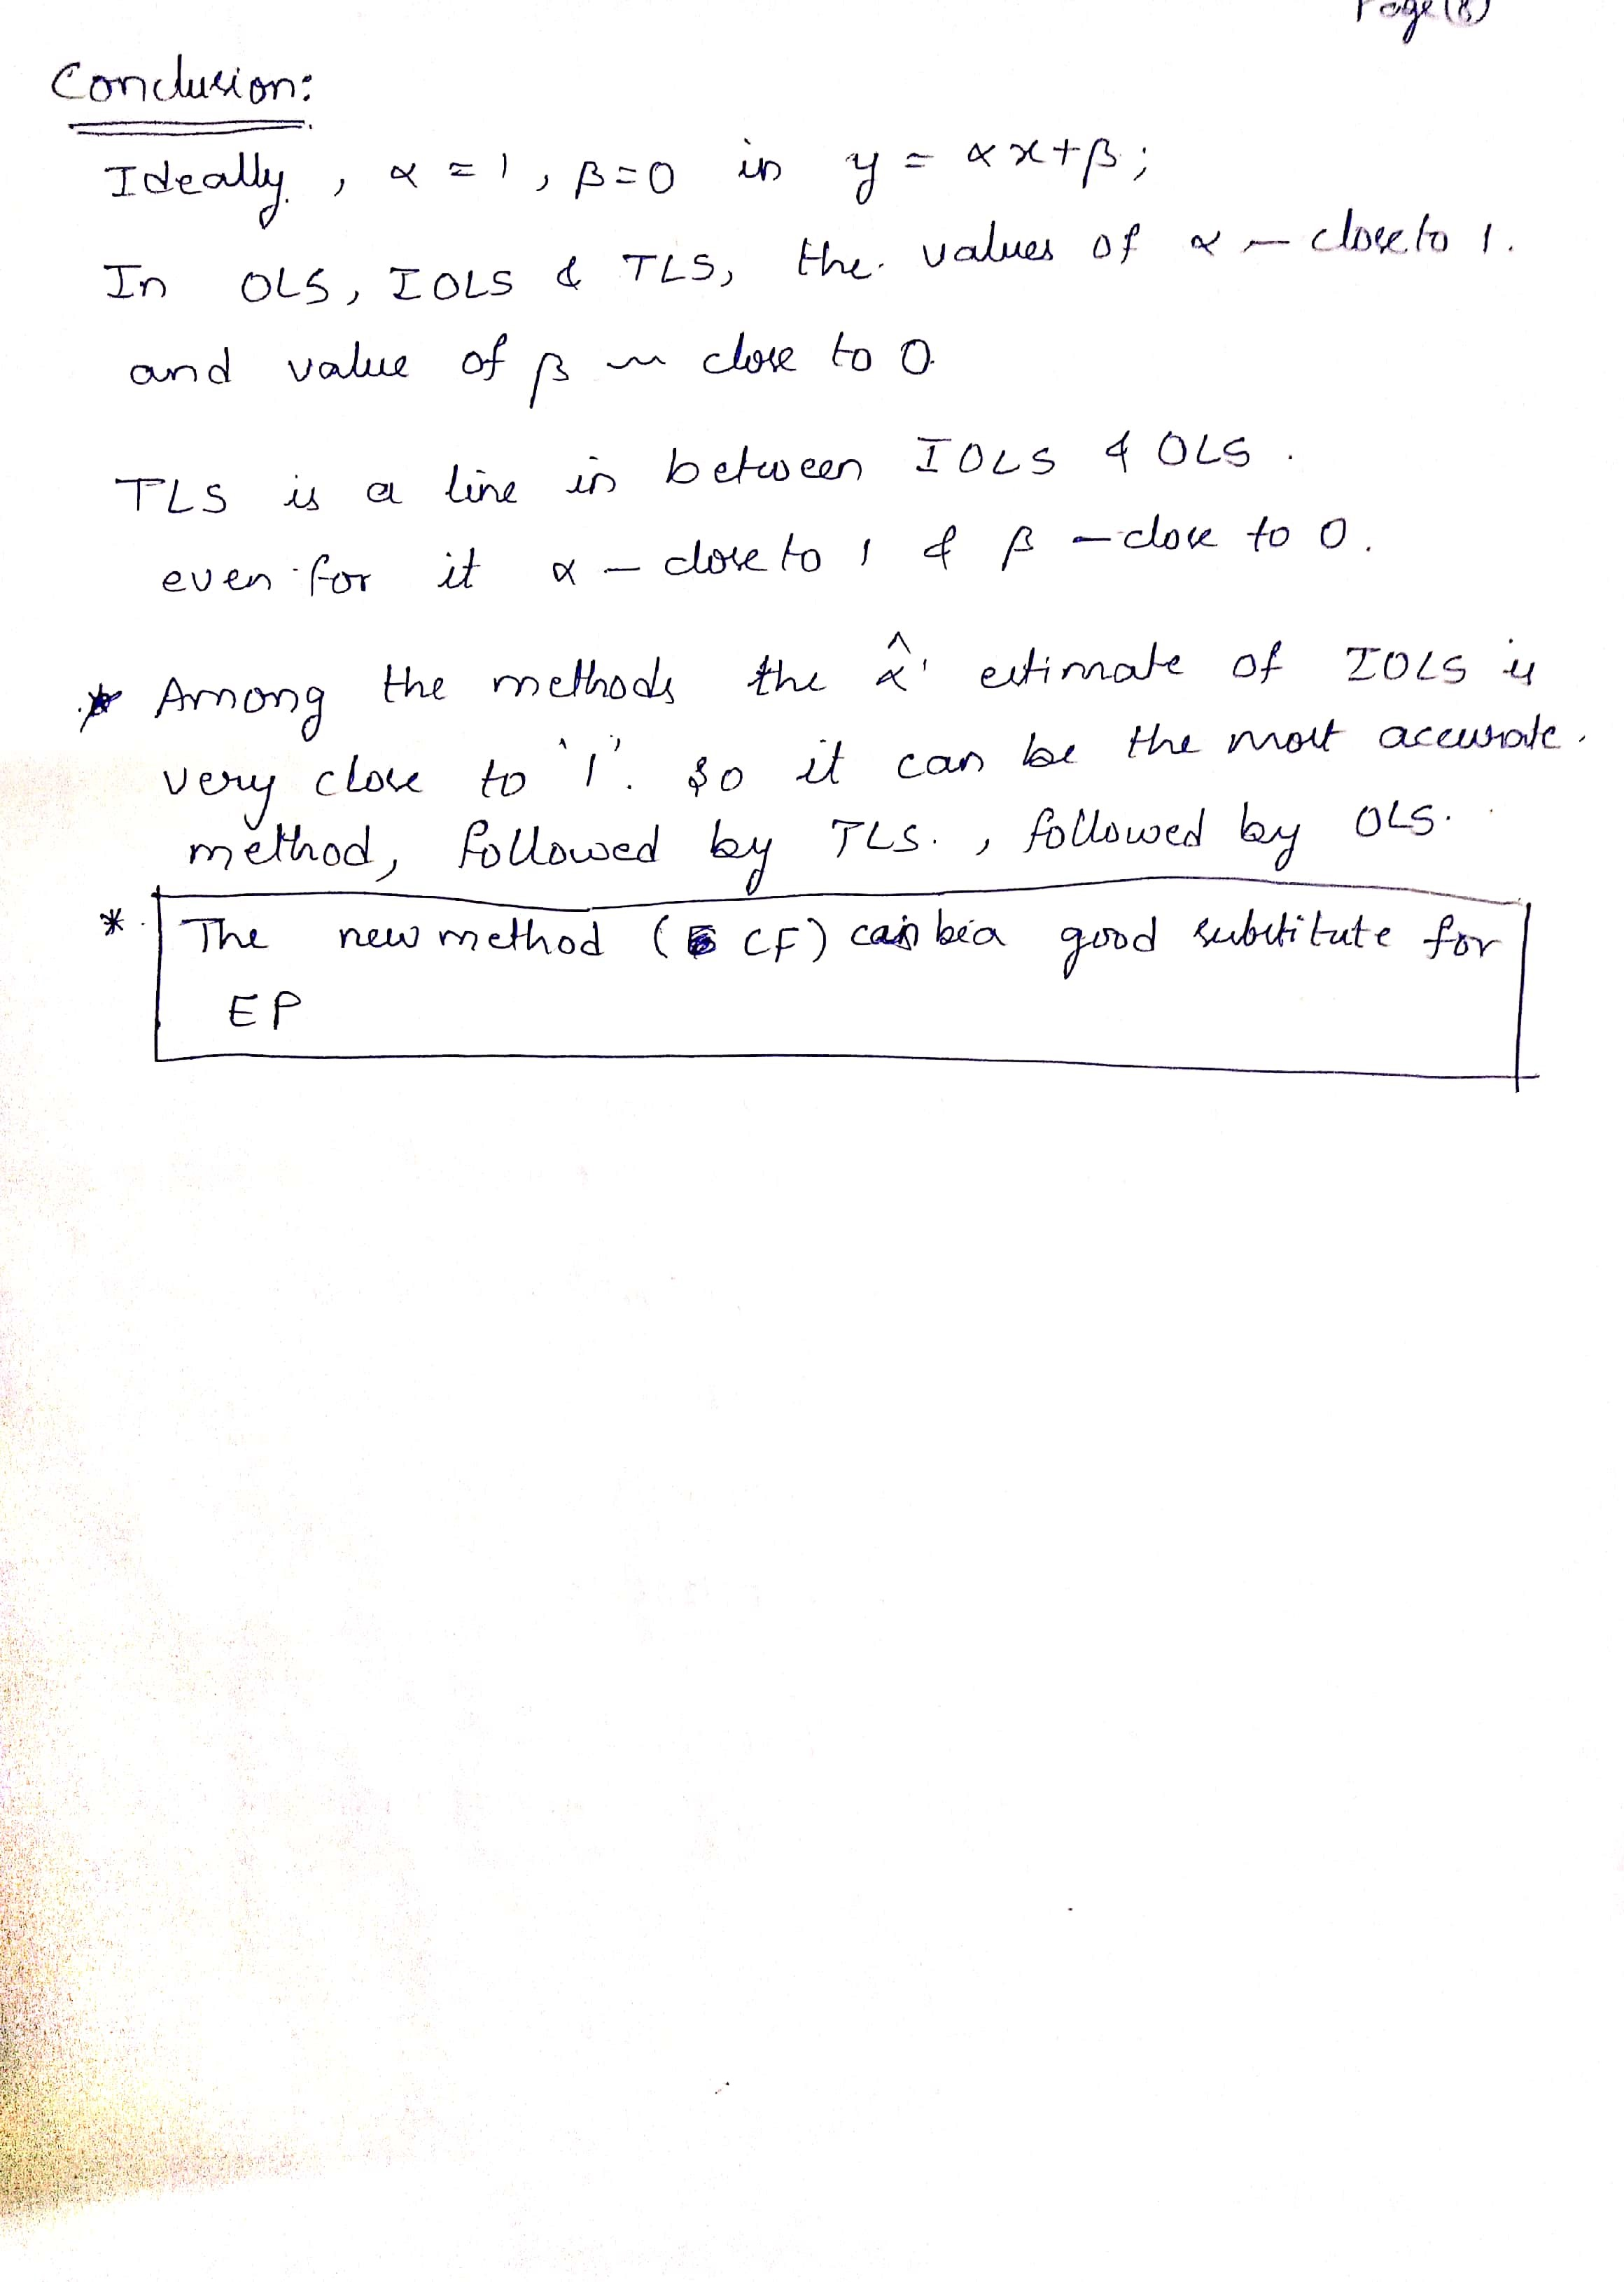 Page (8)
Conclusion:
Ideally, α = 1, β = 0 in y = αx + β;
In OLS, IOLS & TLS, the values of α ~ close to 1.
and value of β ~ close to 0.
TLS is a line in between IOLS & OLS.
even for it α – close to 1 & β – close to 0.
* Among the methods the α̂' estimate of IOLS is
very close to '1'. So it can be the most accurate.
method, followed by TLS., followed by OLS.
* The new method (CF) can be a good substitute for
EP